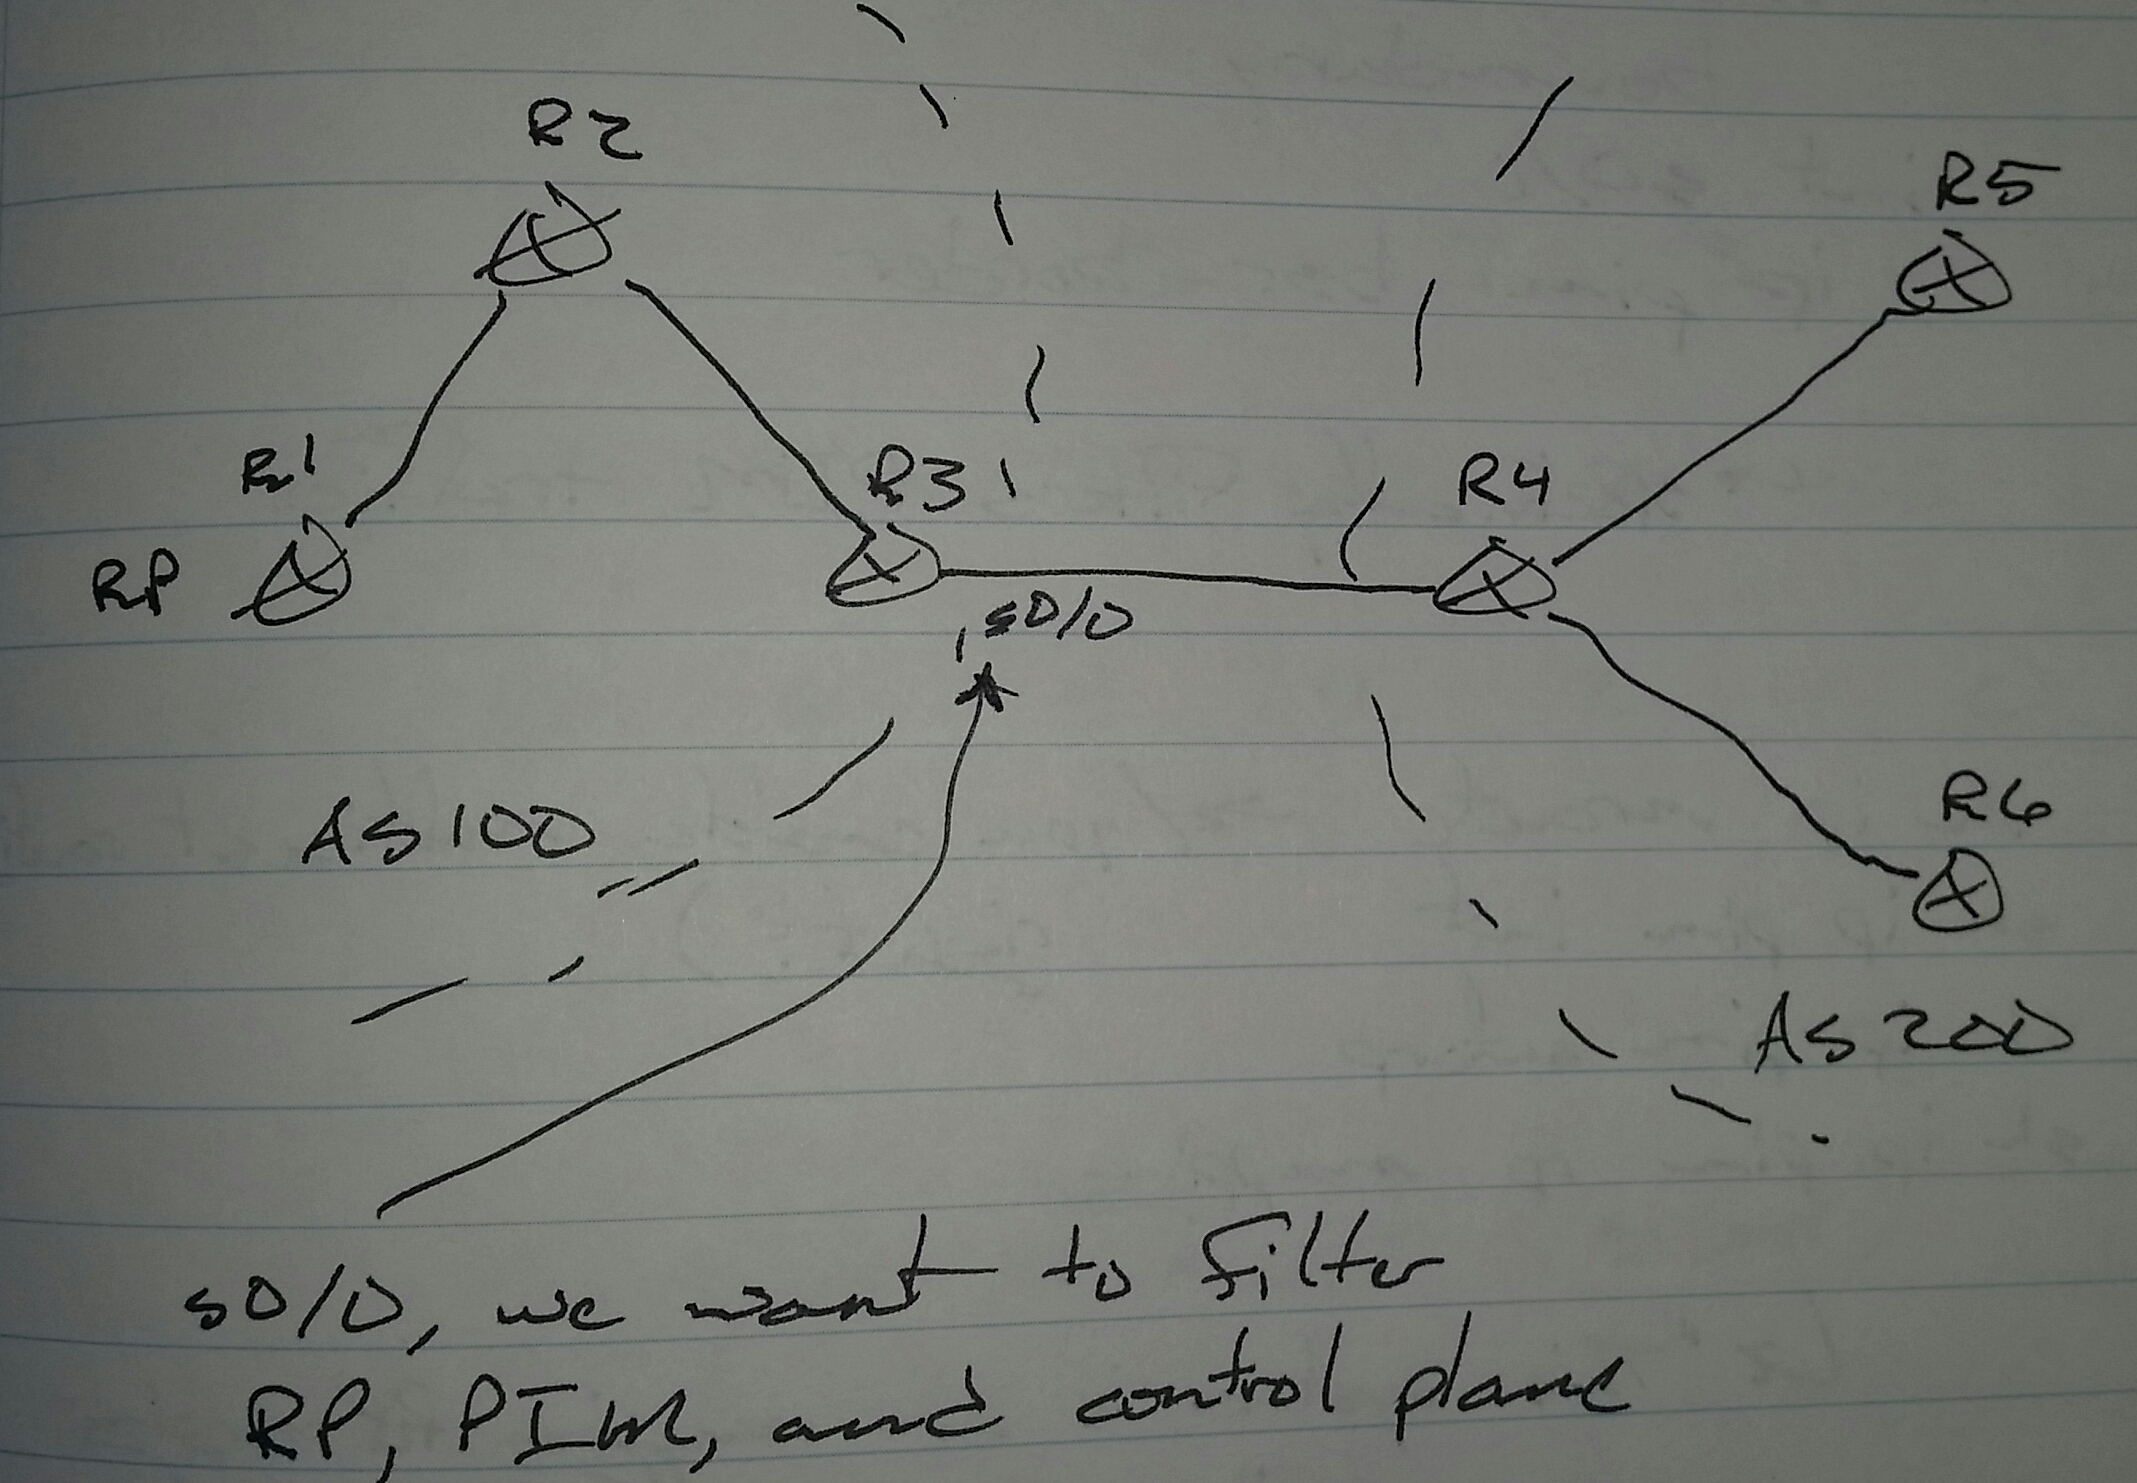 R2
R5
R1
R3
R4
RP
s0/0
R6
AS 100
AS 200
s0/0, we want to filter
RP, PIM, and control plane